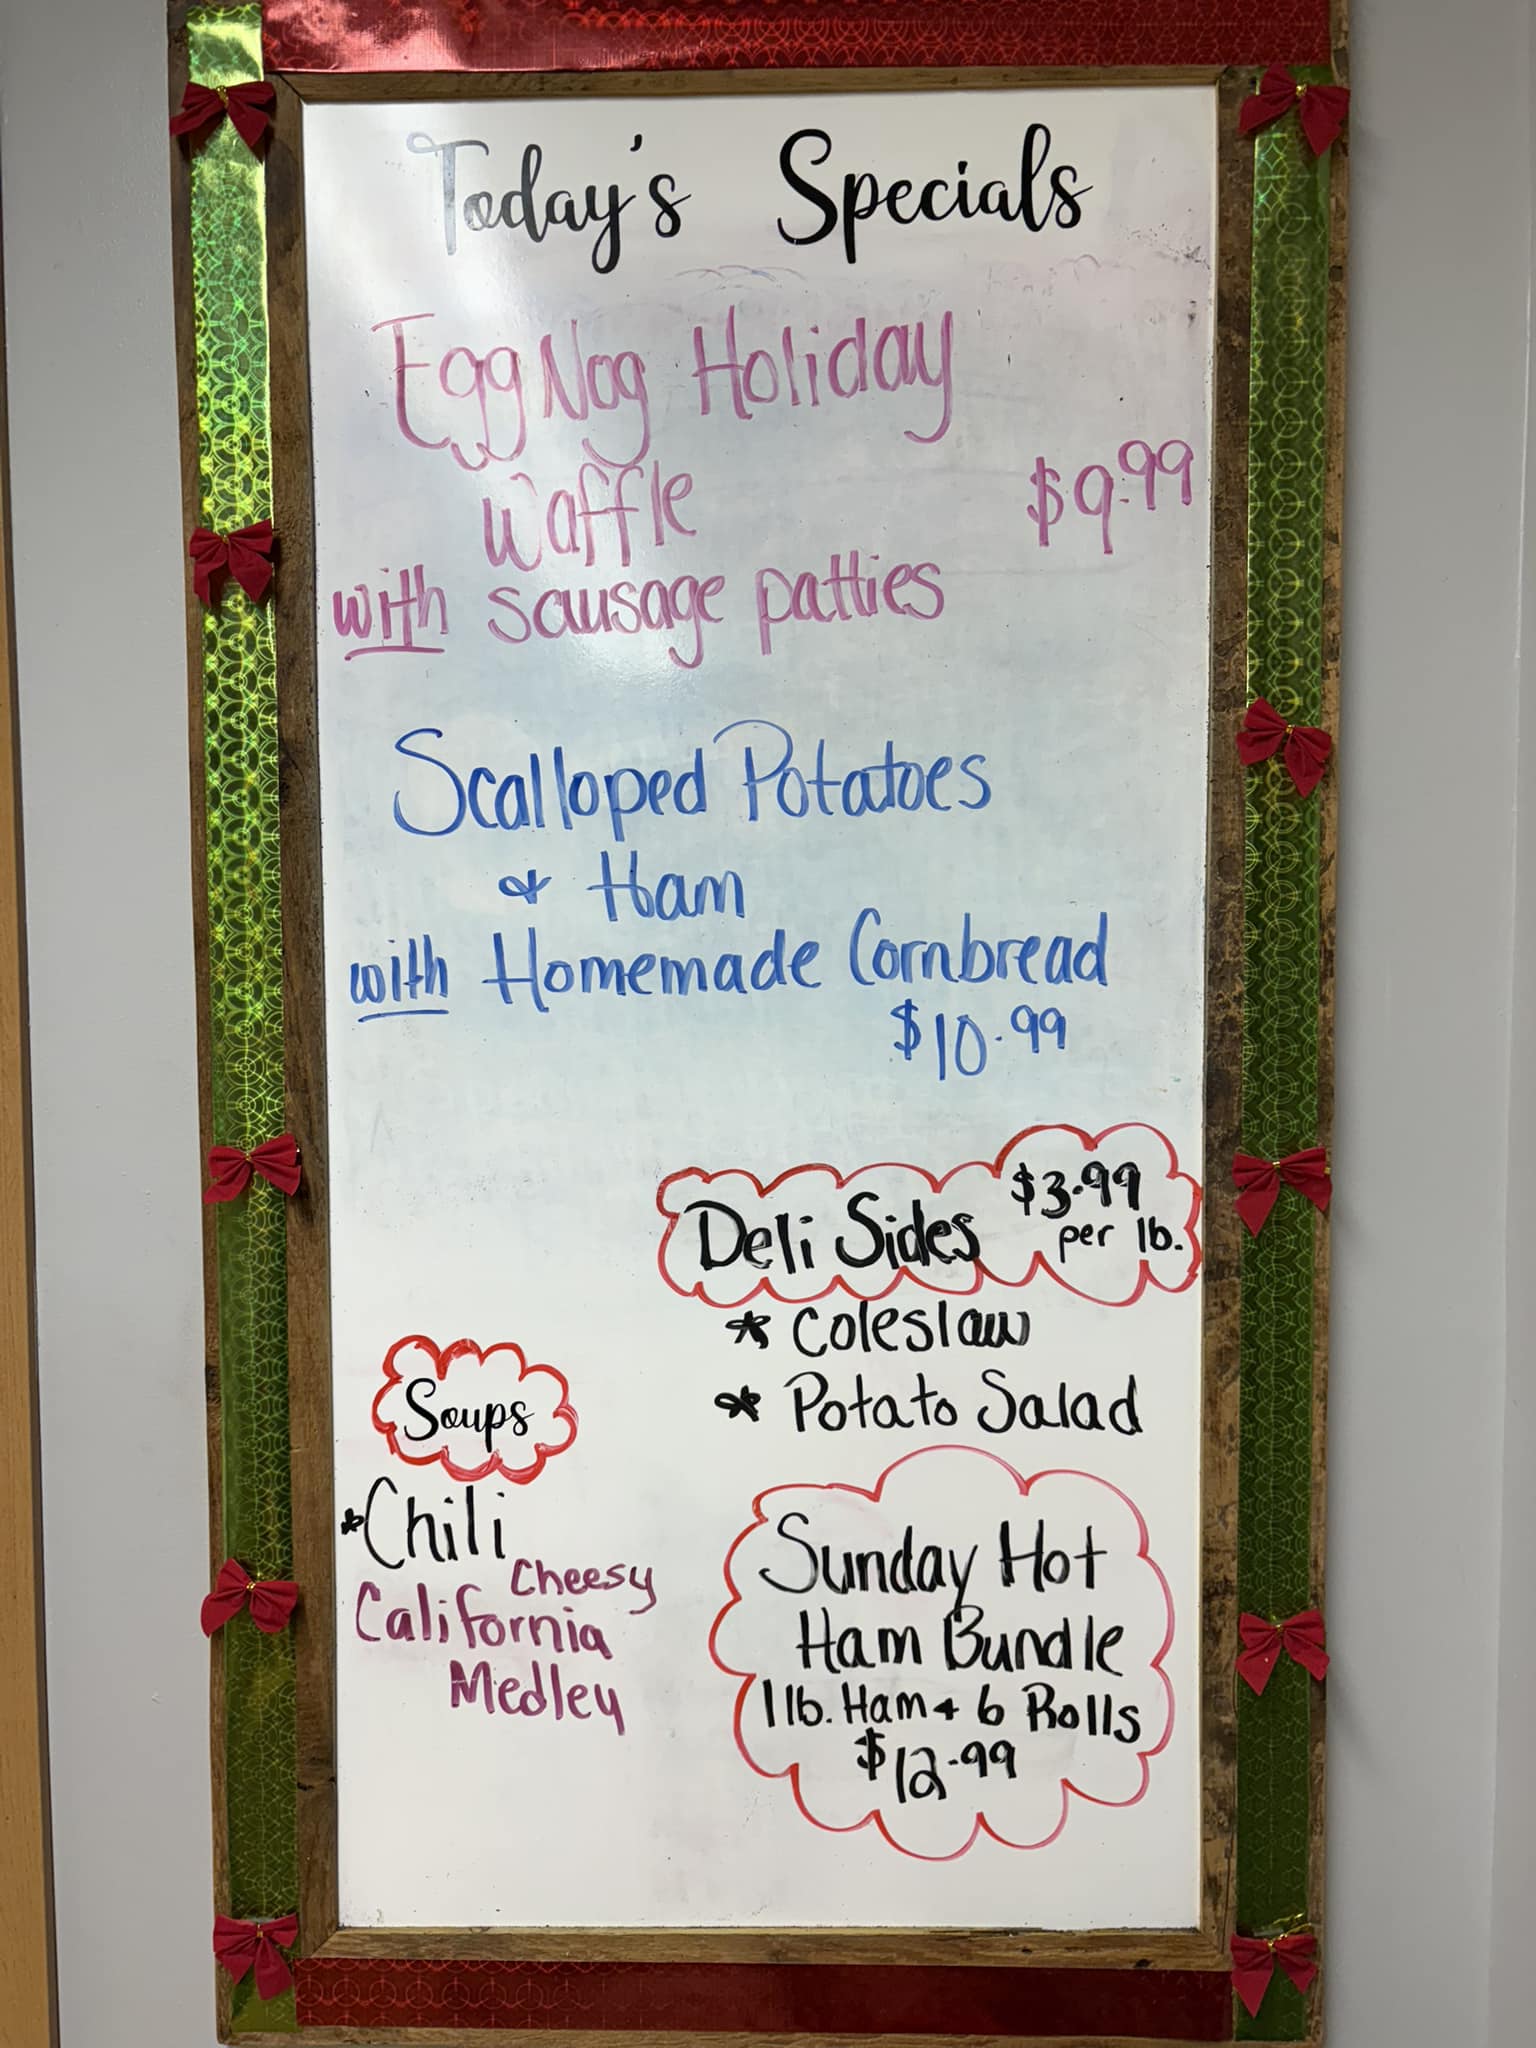 Today's Specials
Egg Nog Holiday
Waffle $9.99
with sausage patties
Scalloped Potatoes
& Ham
with Homemade Cornbread
$10.99
Deli Sides $3.99
per lb.
* Coleslaw
* Potato Salad
Soups
*Chili
Cheesy
California
Medley
Sunday Hot
Ham Bundle
1 lb. Ham + 6 Rolls
$12.99